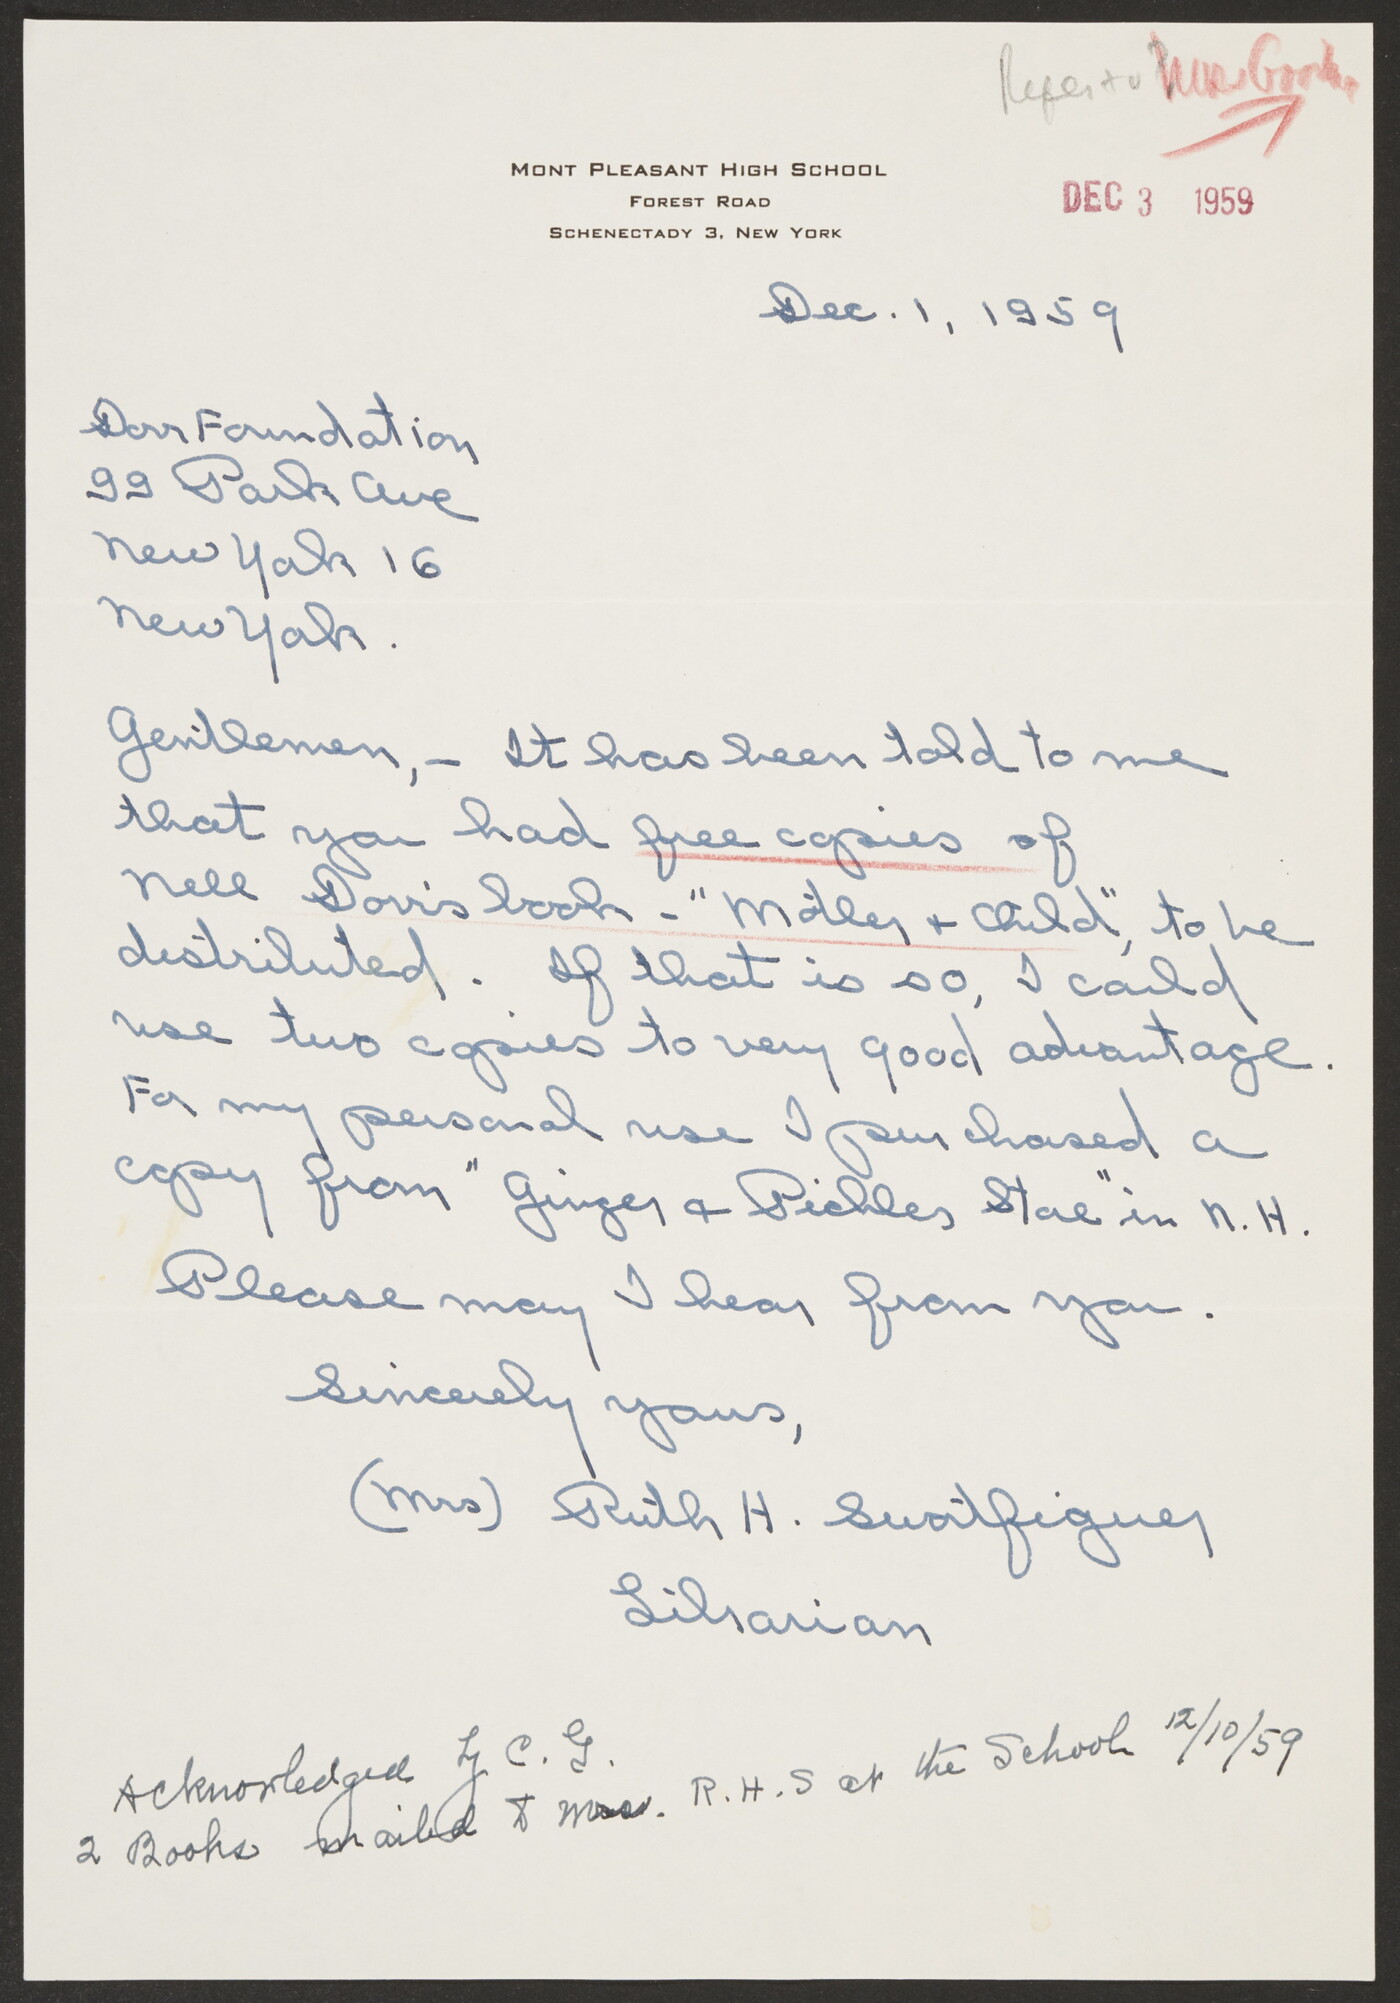 Refer to Mrs. 
MONT PLEASANT HIGH SCHOOL
FOREST ROAD
SCHENECTADY 3, NEW YORK
DEC 3 1959
Dec. 1, 1959
Dorr Foundation
99 Park Ave
New York 16
New York.
Gentlemen,- It has been told to me
that you had free copies of
Nell Dorr's book - "Mother + Child", to be
distributed. If that is so, I could
use two copies to very good advantage.
For my personal use I purchased a
copy from "Ginger & Pickles Store" in N. H.
Please may I hear from you.
Sincerely yours,
(Mrs) Ruth H. Swatfiguer
Librarian
Acknowledged by C. G.
2 Books mailed to Mrs. R. H. S at the School 12/10/59